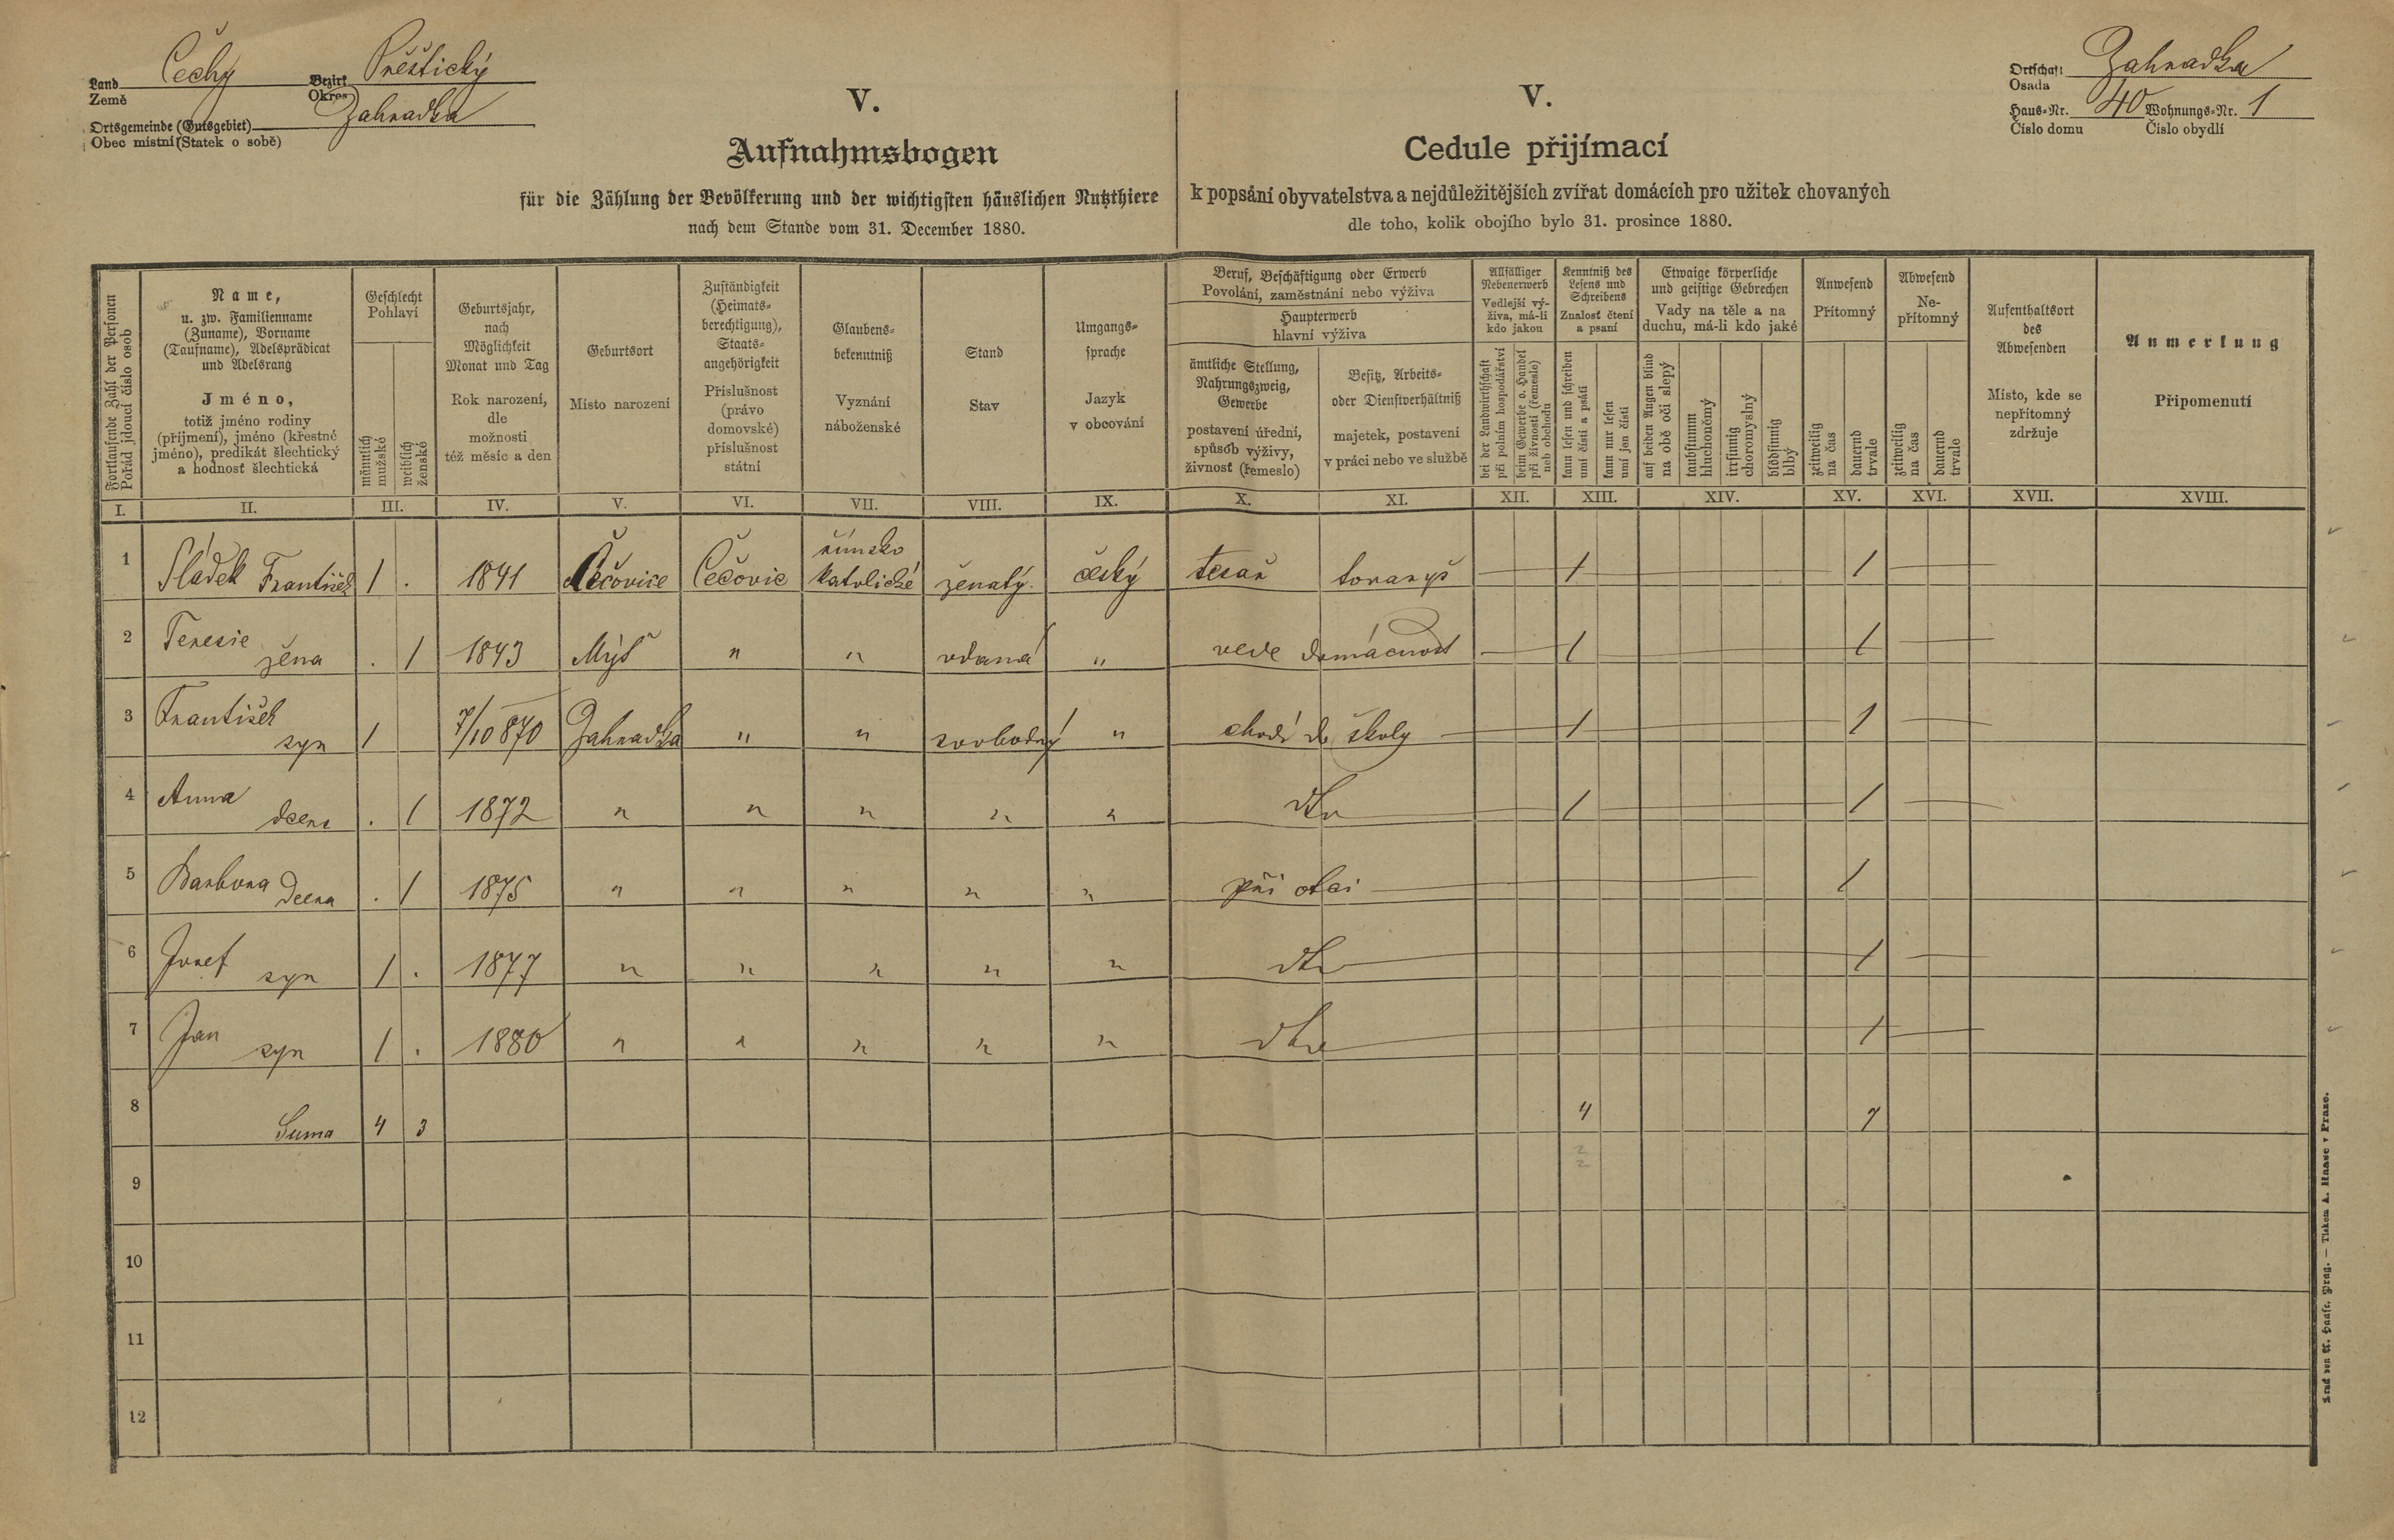 Land Čechy Bezirk Přěštický
Země Okres
Ortsgemeinde (Gutsgebiet) Zahradka
Obec místní (Statek o sobě)
Ortschaft Zahradka
Osada
Haus-Nr. 40 Wohnungs-Nr. 1
Číslo domu Číslo obydlí
V.
Aufnahmsbogen
für die Zählung der Bevölkerung und der wichtigsten häuslichen Nutzthiere
nach dem Stande vom 31. December 1880.
V.
Cedule přijímací
k popsání obyvatelstva a nejdůležitějších zvířat domácích pro užitek chovaných
dle toho, kolik obojího bylo 31. prosince 1880.
Fortlaufende Zahl der Personen
Pořád jdoucí číslo osob
Name,
u. zw. Familienname
(Zuname), Vorname
(Taufname), Adelsprädicat
und Adelsrang
Jméno,
totiž jméno rodiny
(příjmení), jméno (křestné
jméno), predikát šlechtický
a hodnosť šlechtická
Geschlecht
Pohlaví
männlich
mužské
weiblich
ženské
Geburtsjahr,
nach
Möglichkeit
Monat und Tag
Rok narození,
dle
možnosti
též měsíc a den
Geburtsort
Místo narození
Zuständigkeit
(Heimats-
berechtigung),
Staats-
angehörigkeit
Příslušnost
(právo
domovské)
příslušnost
státní
Glaubens-
bekenntniß
Vyznání
náboženské
Stand
Stav
Umgangs-
sprache
Jazyk
v obcování
Beruf, Beschäftigung oder Erwerb
Povolání, zaměstnání nebo výživa
Haupterwerb
hlavní výživa
ämtliche Stellung,
Nahrungszweig,
Gewerbe
postavení úřední,
spůsob výživy,
živnost (řemeslo)
Besitz, Arbeits-
oder Dienstverhältniß
majetek, postavení
v práci nebo ve službě
Allfälliger
Nebenerwerb
Vedlejší vý-
živa, má-li
kdo jakou
bei der Landwirthschaft
při polním hospodářství
beim Gewerbe o. Handel
při živnosti (řemesle)
neb obchodu
Kenntniß des
Lesens und
Schreibens
Znalosť čtení
a psaní
kann lesen und schreiben
umí čísti a psáti
kann nur lesen
umí jen čísti
Etwaige körperliche
und geistige Gebrechen
Vady na těle a na
duchu, má-li kdo jaké
auf beiden Augen blind
na obě oči slepý
taubstumm
hluchoněmý
irrsinnig
choromyslný
blödsinnig
blbý
Anwesend
Přítomný
zeitweilig
na čas
dauernd
trvale
Abwesend
Ne-
přítomný
zeitweilig
na čas
dauernd
trvale
Aufenthaltsort
des
Abwesenden
Místo, kde se
nepřítomný
zdržuje
Anmerkung
Připomenutí
I. II. III. IV. V. VI. VII. VIII. IX. X. XI. XII. XIII. XIV. XV. XVI. XVII. XVIII.
1 Sládek František 1 . 1841 Čečovice Čečovic římsko katolické ženatý český tesař tovaryš 1 1
2 Teresie žena . 1 1843 " " vdaná " vede domácnost 1 1
3 František syn 1 7/10 870 Zahradka " " svobodný " chodí do školy 1 1
4 Anna dcera . 1 1872 " " " " " dto 1 1
5 Barbora dcera . 1 1875 " " " " " při otci 1
6 Josef syn 1 . 1877 " " " " " dto 1
7 Jan syn 1 . 1880 " " " " " dto 1
8 Suma 4 3 4 7
2
2
9
10
11
12
Druck von A. Haase, Prag. — Tiskem A. Haase v Praze.